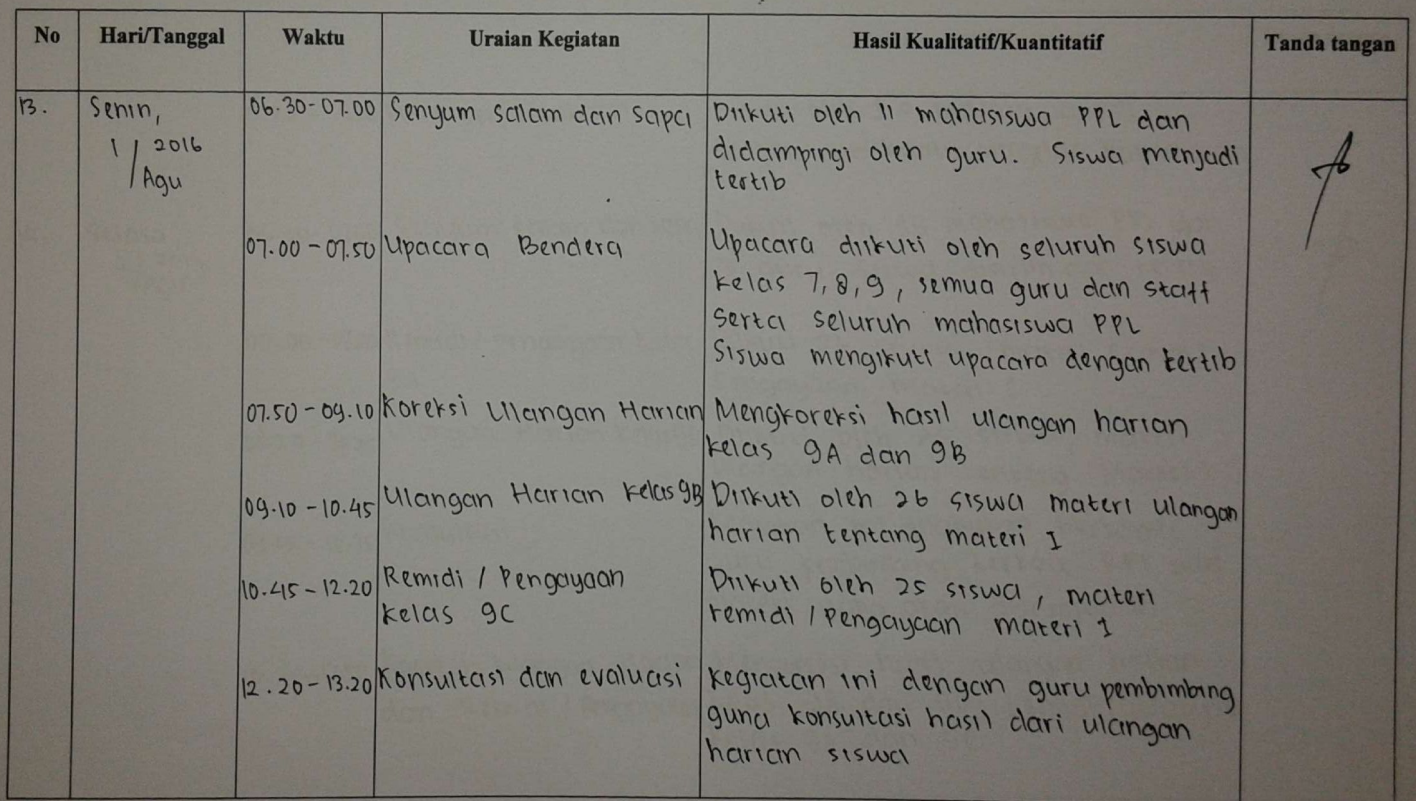 No Hari/Tanggal Waktu Uraian Kegiatan Hasil Kualitatif/Kuantitatif Tanda tangan
13. Senin, 06.30-07.00 Senyum salam dan sapa Diikuti oleh 11 mahasiswa PPL dan
1/2016 didampingi oleh guru. Siswa menjadi
Agu tertib
07.00-07.50 Upacara Bendera Upacara diikuti oleh seluruh siswa
kelas 7,8,9, semua guru dan staff
serta seluruh mahasiswa PPL
Siswa mengikuti upacara dengan tertib
07.50-09.10 Koreksi Ulangan Harian Mengkoreksi hasil ulangan harian
kelas 9A dan 9B
09.10-10.45 Ulangan Harian kelas 9B Diikuti oleh 26 siswa materi ulangan
harian tentang materi I
10.45-12.20 Remidi / Pengayaan Diikuti oleh 25 siswa, materi
kelas 9C remidi / Pengayaan materi 1
12.20-13.20 Konsultasi dan evaluasi kegiatan ini dengan guru pembimbing
guna konsultasi hasil dari ulangan
harian siswa